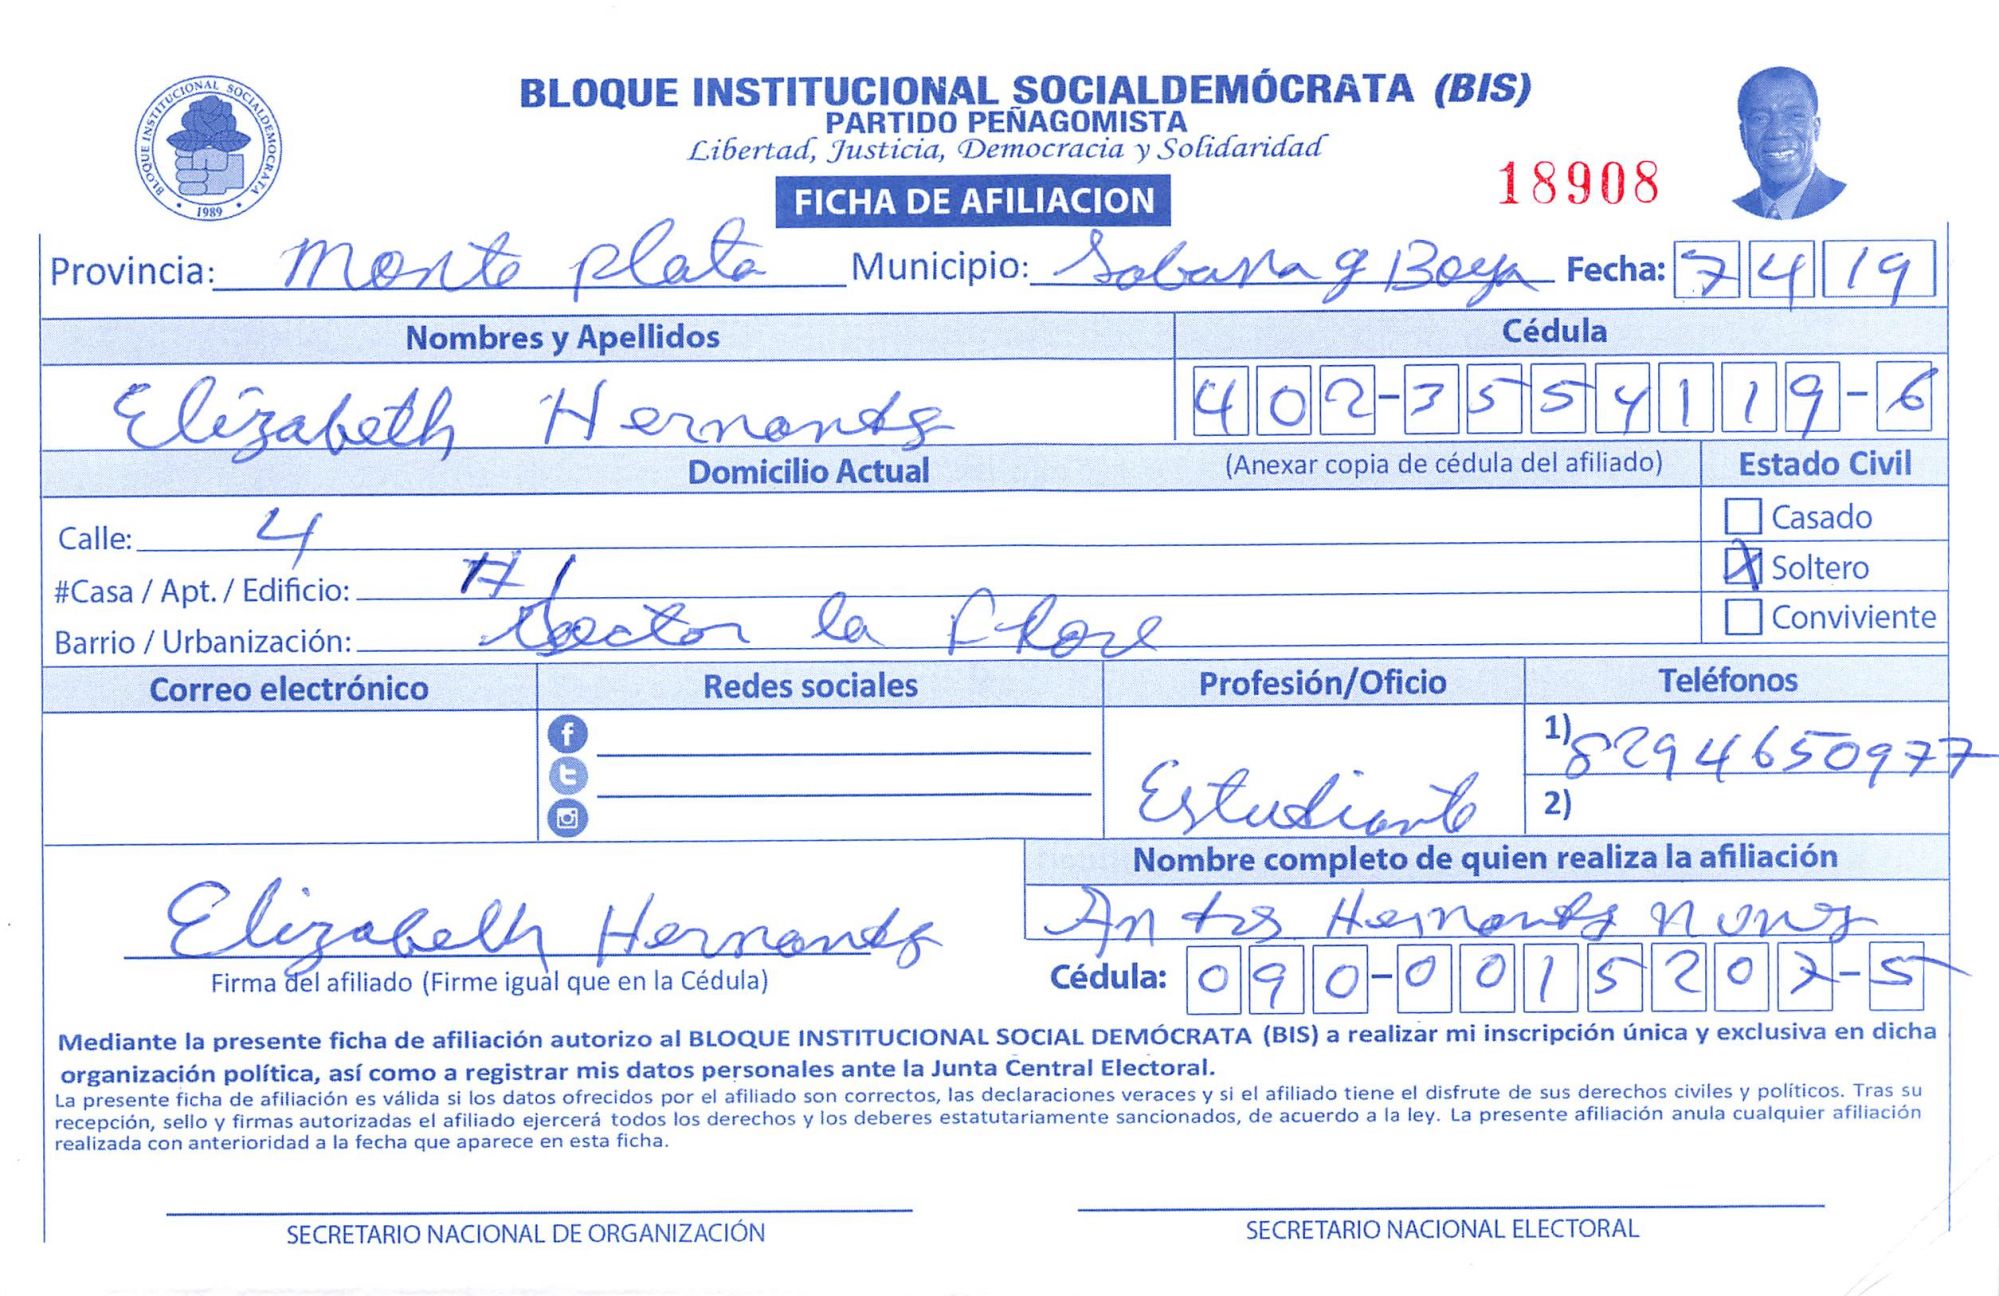 BLOQUE INSTITUCIONAL SOCIALDEMÓCRATA (BIS)
PARTIDO PEÑAGOMISTA
Libertad, Justicia, Democracia y Solidaridad
BLOQUE INSTITUCIONAL SOCIALDEMOCRATA
1989
18908
FICHA DE AFILIACION
Provincia: Monte plata Municipio: Sabana g Boya Fecha: 7 4 19
Nombres y Apellidos Cédula
Elizabeth Hernandez 402-3554119-6
Domicilio Actual (Anexar copia de cédula del afiliado) Estado Civil
Calle: 4 Casado
#Casa / Apt. / Edificio: # 1 X Soltero
Barrio / Urbanización: Sector la Flore Conviviente
Correo electrónico Redes sociales Profesión/Oficio Teléfonos
1) 8294650977
Estudiante 2)
Nombre completo de quien realiza la afiliación
Elizabeth Hernandez Hernandez
Firma del afiliado (Firme igual que en la Cédula) Cédula: 090-0015207-5
Mediante la presente ficha de afiliación autorizo al BLOQUE INSTITUCIONAL SOCIAL DEMÓCRATA (BIS) a realizar mi inscripción única y exclusiva en dicha
organización política, así como a registrar mis datos personales ante la Junta Central Electoral.
La presente ficha de afiliación es válida si los datos ofrecidos por el afiliado son correctos, las declaraciones veraces y si el afiliado tiene el disfrute de sus derechos civiles y políticos. Tras su
recepción, sello y firmas autorizadas el afiliado ejercerá todos los derechos y los deberes estatutariamente sancionados, de acuerdo a la ley. La presente afiliación anula cualquier afiliación
realizada con anterioridad a la fecha que aparece en esta ficha.
SECRETARIO NACIONAL DE ORGANIZACIÓN SECRETARIO NACIONAL ELECTORAL